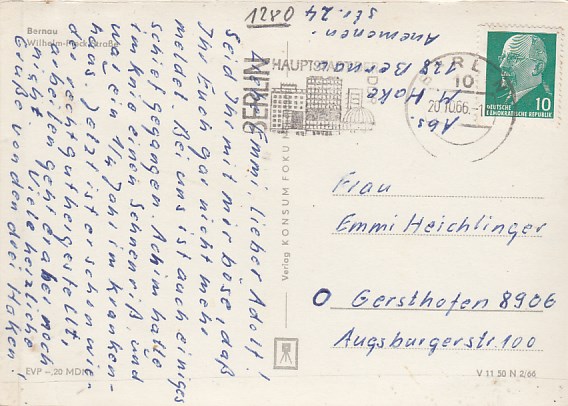 Bernau
Wilhelm-Pieck-Straße
1280
Abs.
M. Hake
128 Bernau
Anemonen-
str. 24
BERLIN
HAUPTSTADT DER DDR
BERLIN
10
20.10.66.
DEUTSCHE
DEMOKRATISCHE REPUBLIK
10
Liebe Emmi, lieber Adolf!
Seid Ihr mit mir böse, daß
Ihr Euch gar nicht mehr
meldet. Bei uns ist auch einiges
schief gegangen. Achim hatte
im Knie einen Sehnenriß und
war ein 1/4 Jahr im Kranken-
haus. Jetzt ist er schon wie-
der recht gut hergestellt,
arbeiten geht er aber noch
nicht. Viele herzliche
Grüße von den drei Haken!
Verlag KONSUM FOKU
Frau
Emmi Heichlinger
O Gersthofen 8906
Augsburgerstr. 100
EVP -,20 MDN
V 11 50 N 2/66